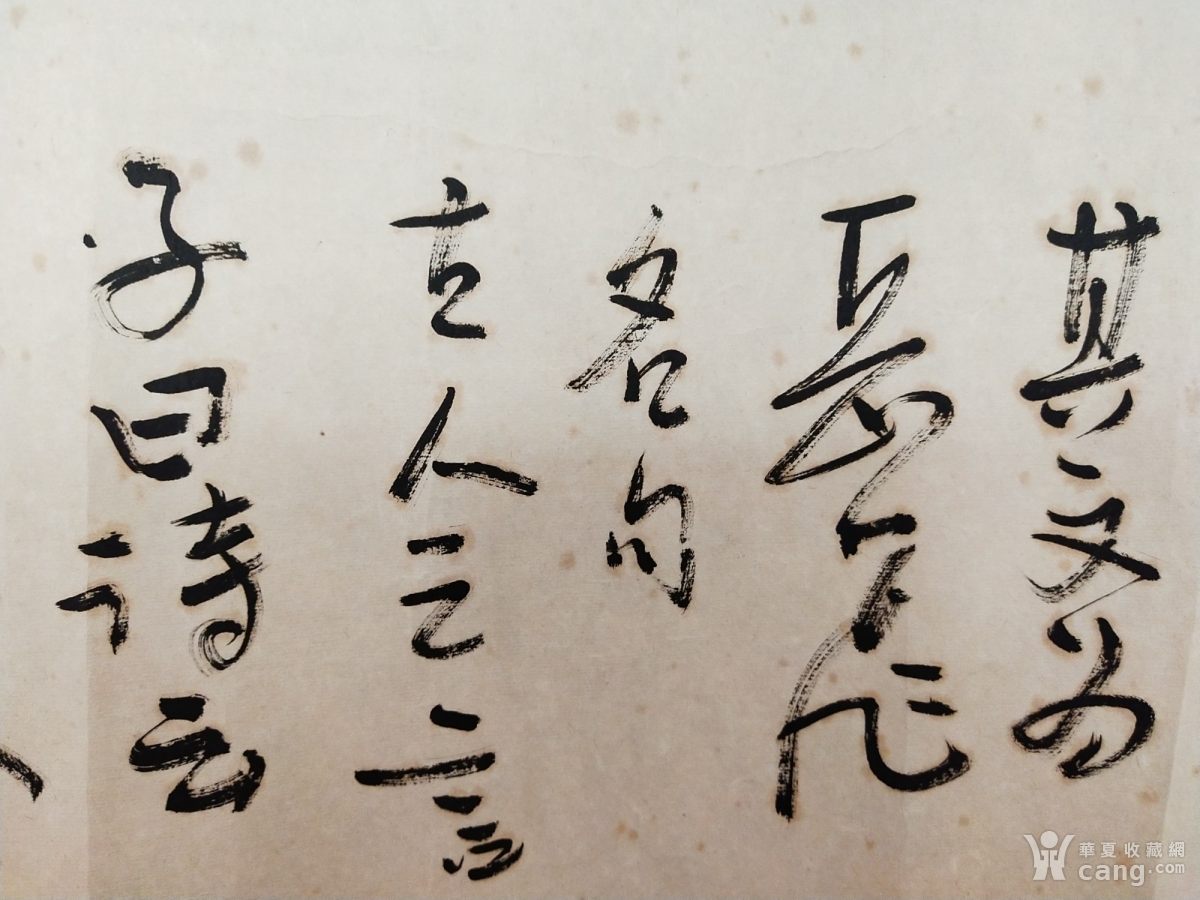 其文为
名句
古人之言
子曰诗云
華夏收藏網
cang.com